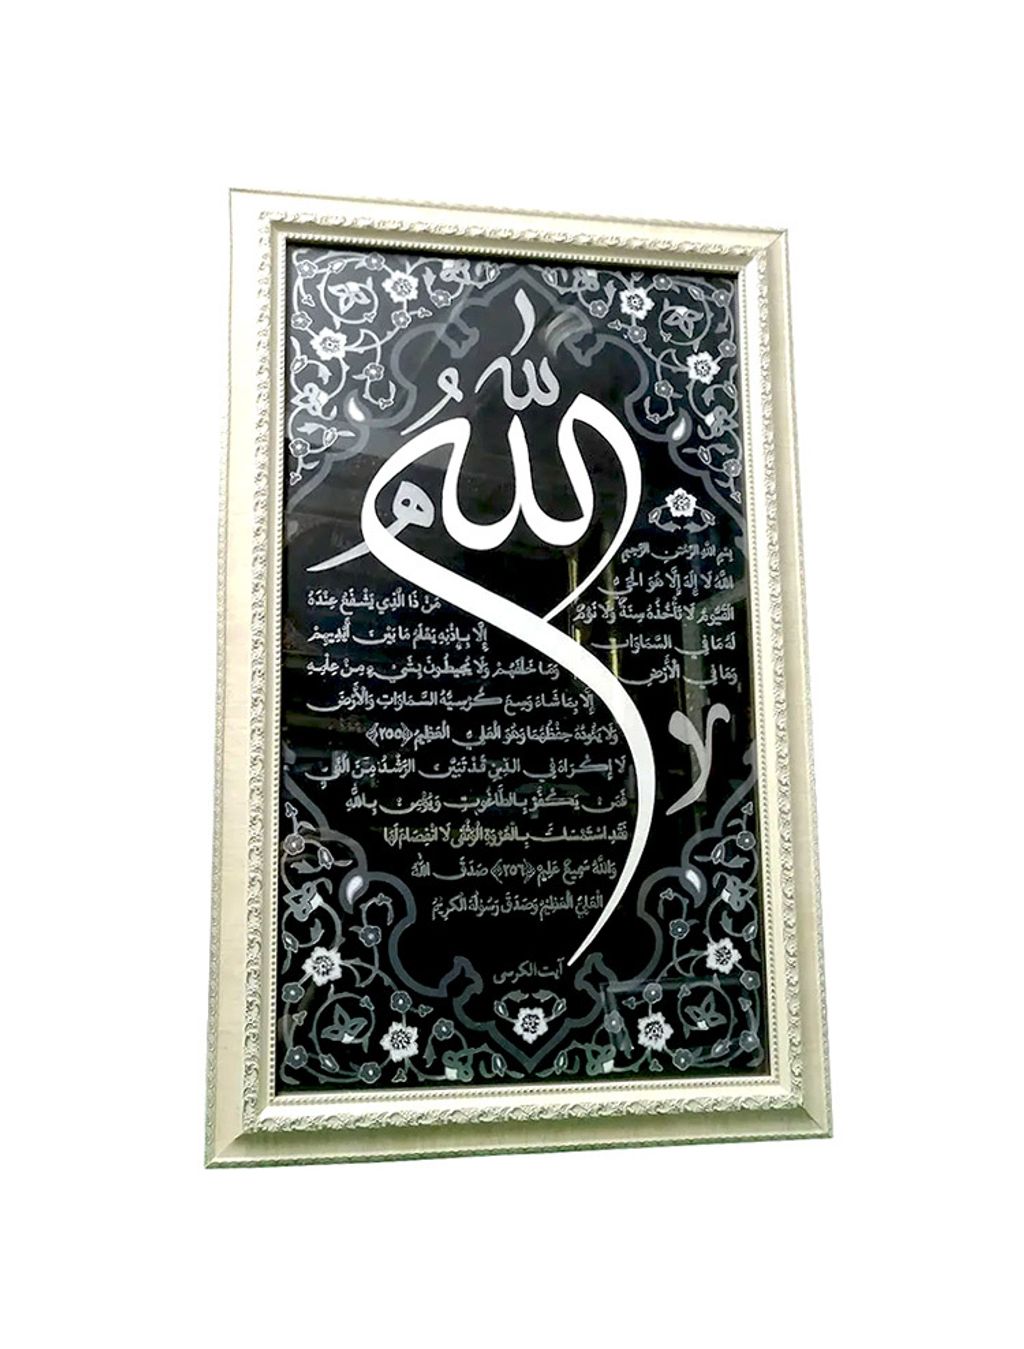 اللّٰهُ
بِسْمِ اللَّهِ الرَّحْمٰنِ الرَّحِيمِ
اللَّهُ لَا إِلَهَ إِلَّا هُوَ الْحَيُّ
الْقَيُّومُ لَا تَأْخُذُهُ سِنَةٌ وَلَا نَوْمٌ
لَهُ مَا فِي السَّمَاوَاتِ
وَمَا فِي الْأَرْضِ
مَنْ ذَا الَّذِي يَشْفَعُ عِنْدَهُ
إِلَّا بِإِذْنِهِ يَعْلَمُ مَا بَيْنَ أَيْدِيهِمْ
وَمَا خَلْفَهُمْ وَلَا يُحِيطُونَ بِشَيْءٍ مِنْ عِلْمِهِ
إِلَّا بِمَا شَاءَ وَسِعَ كُرْسِيُّهُ السَّمَاوَاتِ وَالْأَرْضَ
وَلَا يَئُودُهُ حِفْظُهُمَا وَهُوَ الْعَلِيُّ الْعَظِيمُ ﴿٢٥٥﴾
لَا إِكْرَاهَ فِي الدِّينِ قَدْ تَبَيَّنَ الرُّشْدُ مِنَ الْغَيِّ
فَمَنْ يَكْفُرْ بِالطَّاغُوتِ وَيُؤْمِنْ بِاللَّهِ
فَقَدِ اسْتَمْسَكَ بِالْعُرْوَةِ الْوُثْقَى لَا انْفِصَامَ لَهَا
وَاللَّهُ سَمِيعٌ عَلِيمٌ ﴿٢٥٦﴾ صَدَقَ اللَّهُ
الْعَلِيُّ الْعَظِيمُ وَصَدَقَ رَسُولُهُ الْكَرِيمُ
آیت الکرسی